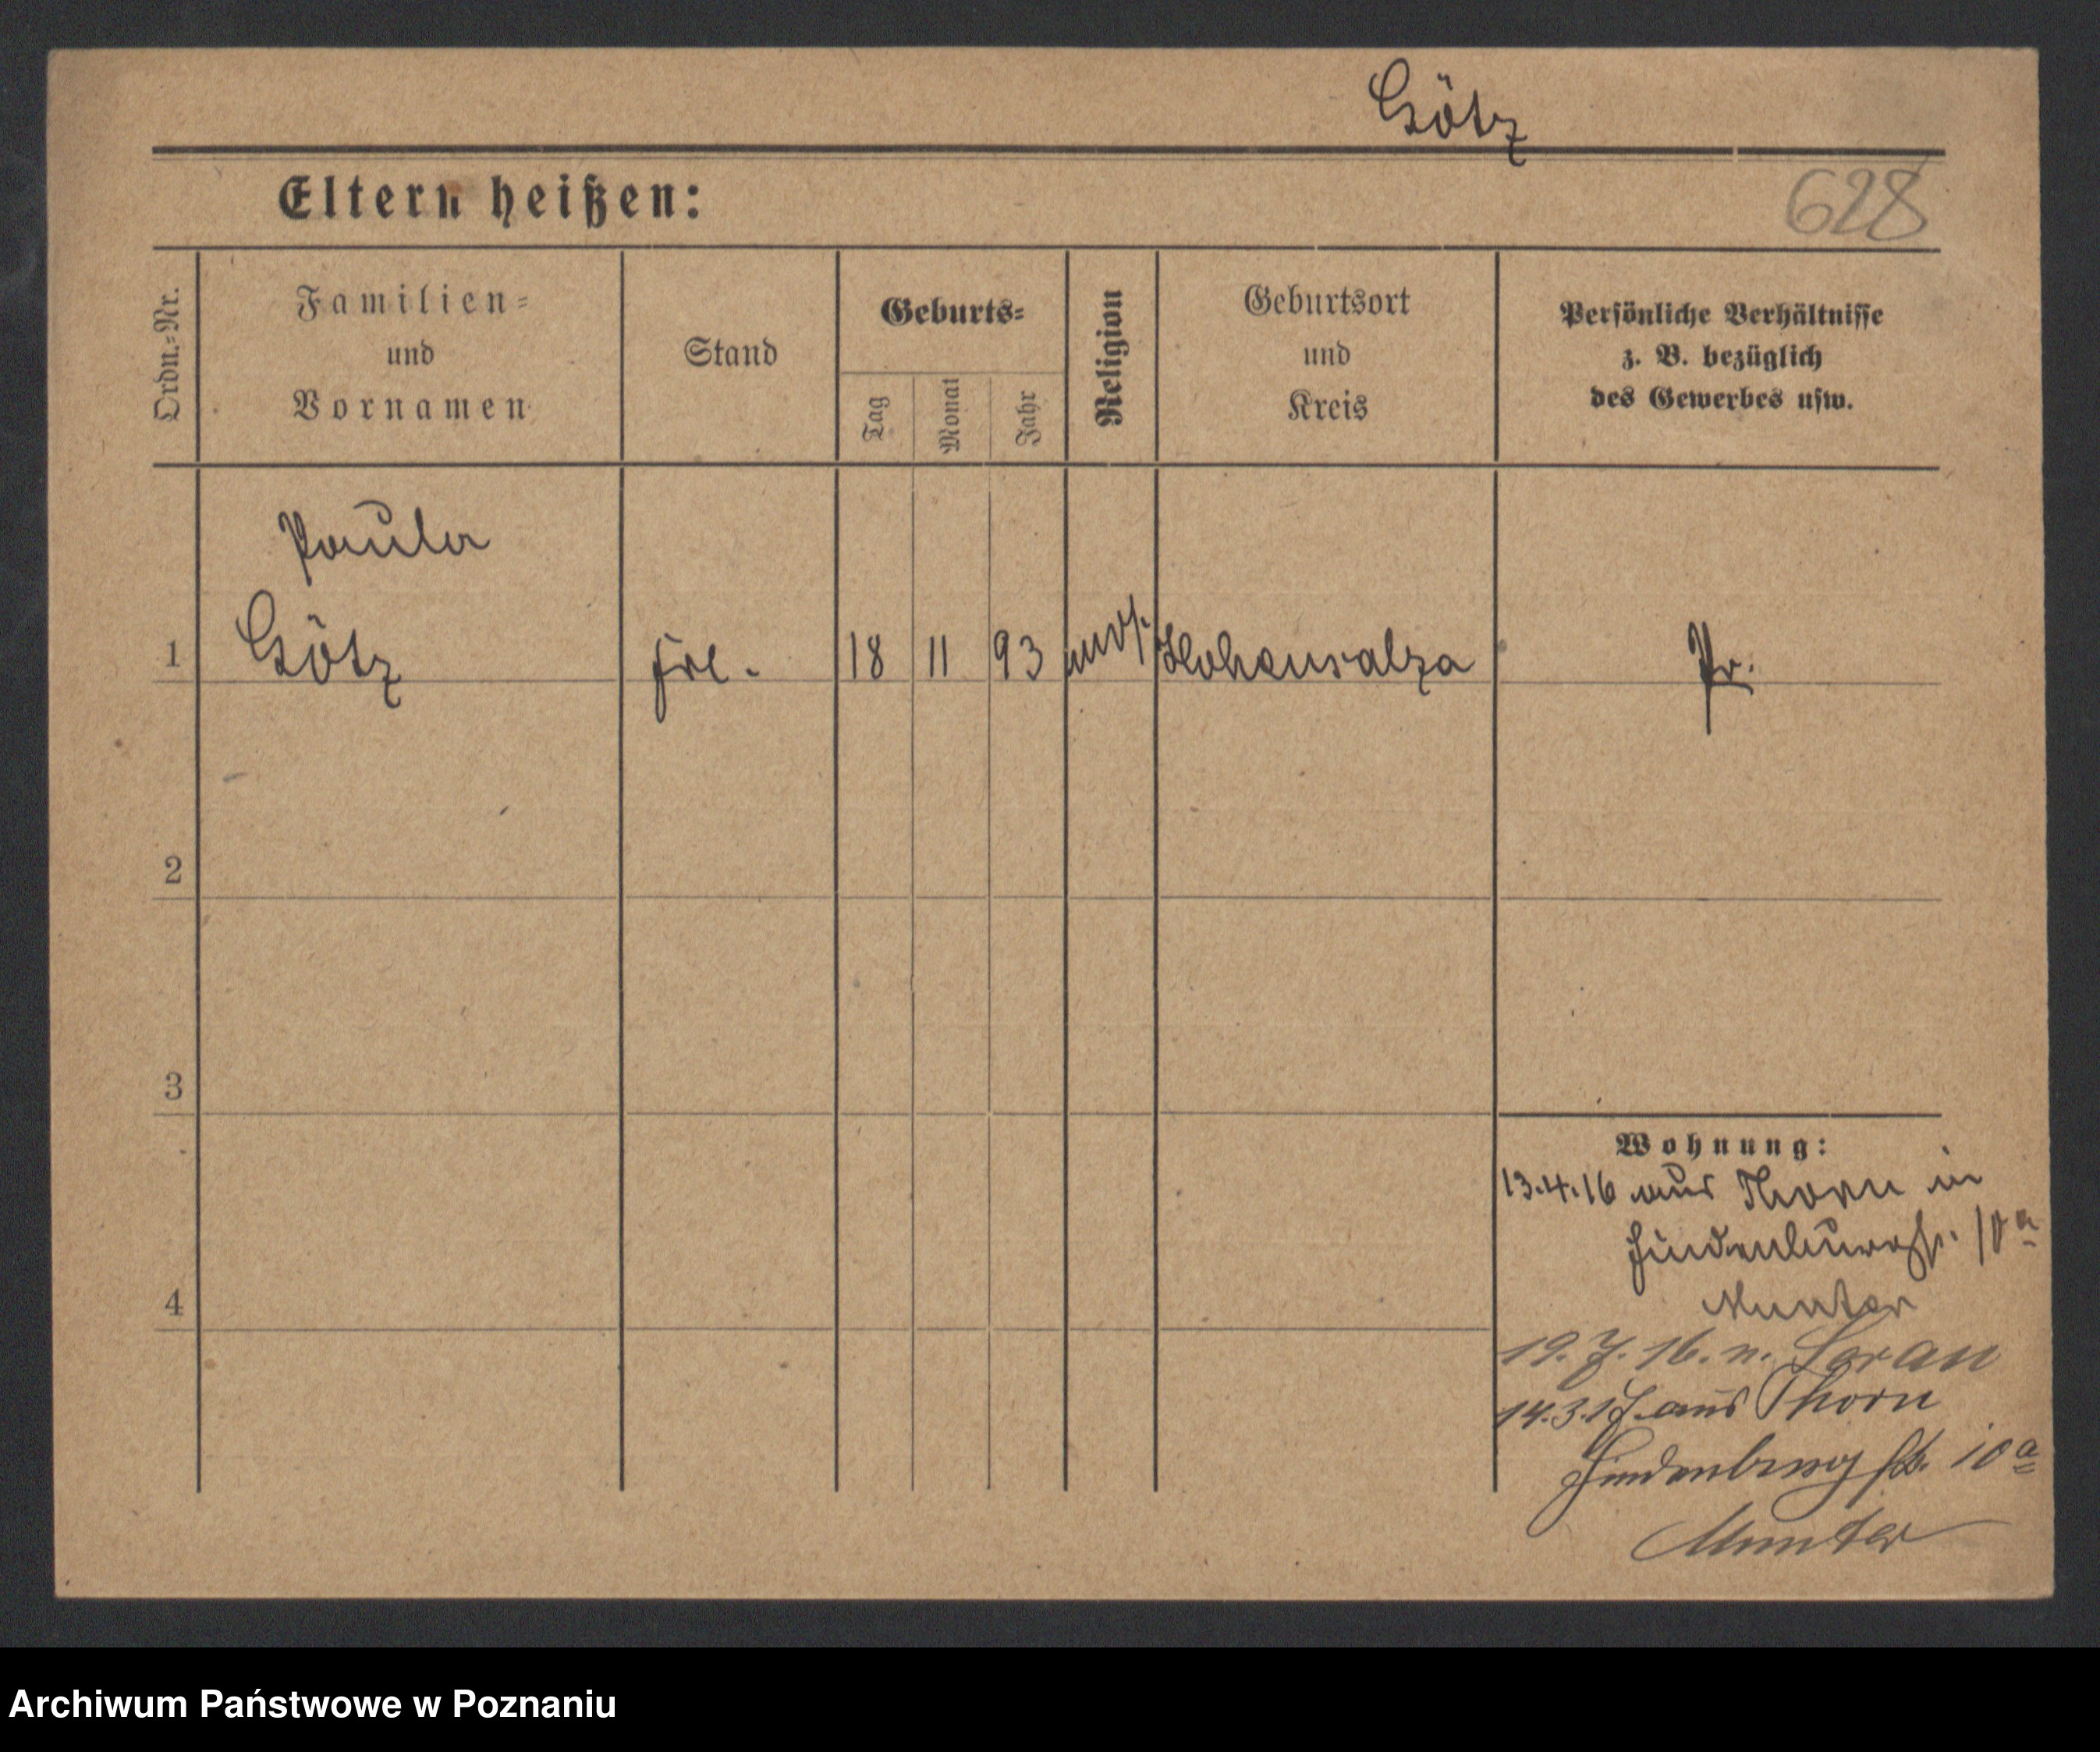 Götz
Eltern heißen:
628
Ordn.-Nr.
Familien-
und
Vornamen
Stand
Geburts-
Tag
Monat
Jahr
Religion
Geburtsort
und
Kreis
Persönliche Verhältnisse
z. B. bezüglich
des Gewerbes usw.
Paula
1 Götz frl. 18 11 93 mos. Hohensalza Pr.
2
3
Wohnung:
13.4.16 aus Thorn in
Hindenburgstr. 10a
4
Munter
19.7.16. n. Soran
14.3.17. aus Thorn
Hindenburgstr. 10a
Munter
Archiwum Państwowe w Poznaniu